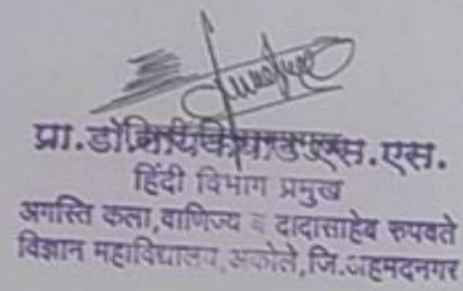 प्रा.डॉ. एस.एस.
हिंदी विभाग प्रमुख
अगस्ति कला,वाणिज्य व दादासाहेब रुपवते
विज्ञान महाविद्यालय,अकोले,जि.अहमदनगर